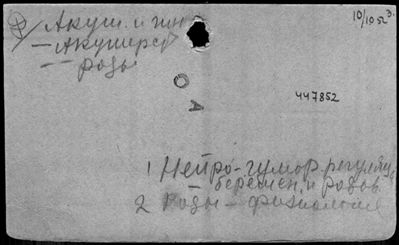 Акуш. и гин
10/10 52 г.
— Акушерст
— — роды
О А
447852
1 Нейро-гумор. регуляц.
— беремен. и родов
2 Роды — физиология